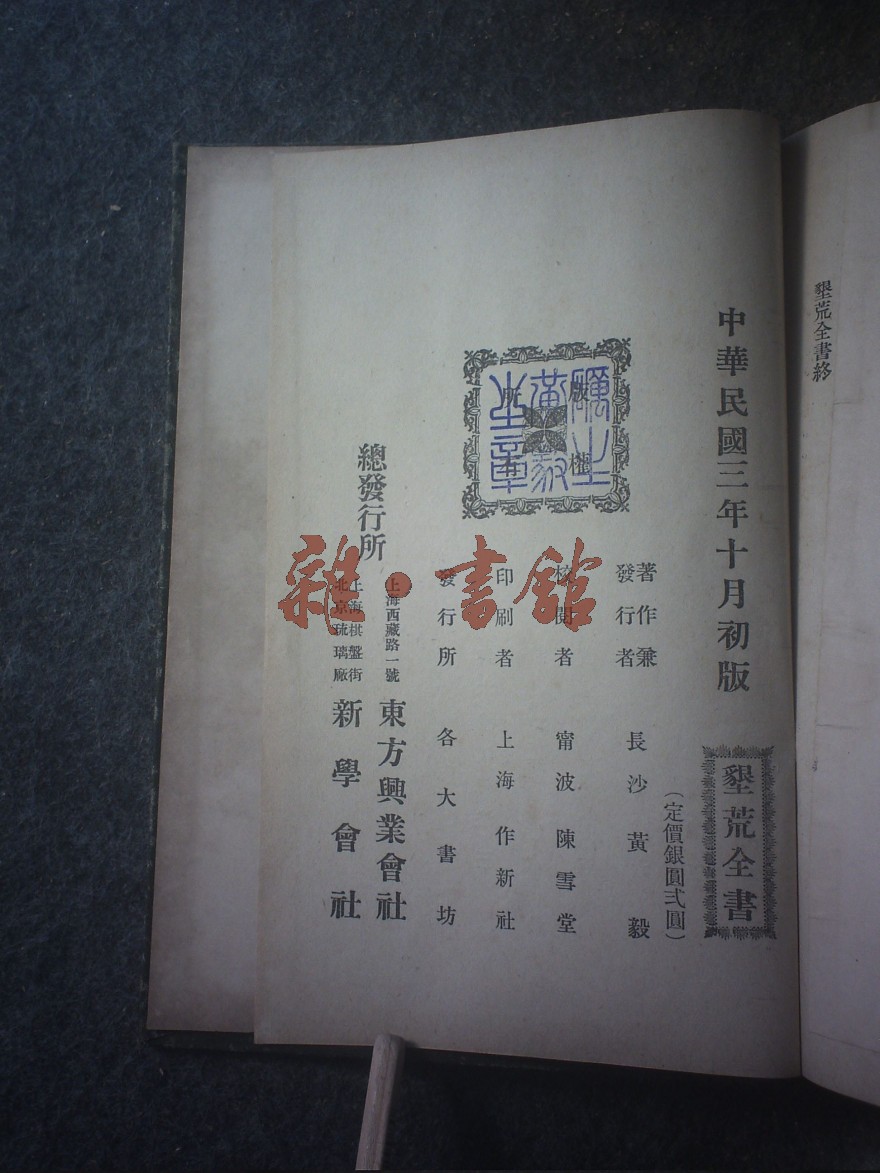 墾荒全書終
中華民國三年十月初版
墾荒全書
（定價銀圓弍圓）
著作兼
發行者
長沙黃毅
校閱者
甯波陳雪堂
印刷者
上海作新社
發行所
各大書坊
版權
所有
總發行所
上海西藏路一號
東方興業會社
上海棋盤街
北京琉璃廠
新學會社
雜·書館